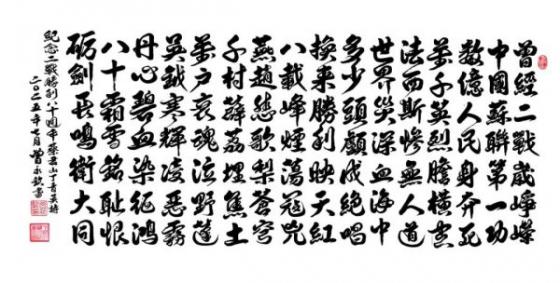 曾經二戰歲崢嶸
中國蘇聯第一功
數億人民身奔死
萬千英烈膽橫空
法西斯慘無人道
世界災深血海中
多少頭顱成絕唱
換來勝利映天紅
八載烽煙蕩寇兇
燕趙悲歌裂蒼穹
千村薜荔埋焦土
萬戶哀魂泣野蓬
吳鉞寒輝凌惡霧
丹心碧血染征鴻
八十霜雪銘恥恨
礪劍長鳴衛大同
紀念二戰勝利八十週年
二〇二五年七月曾永書